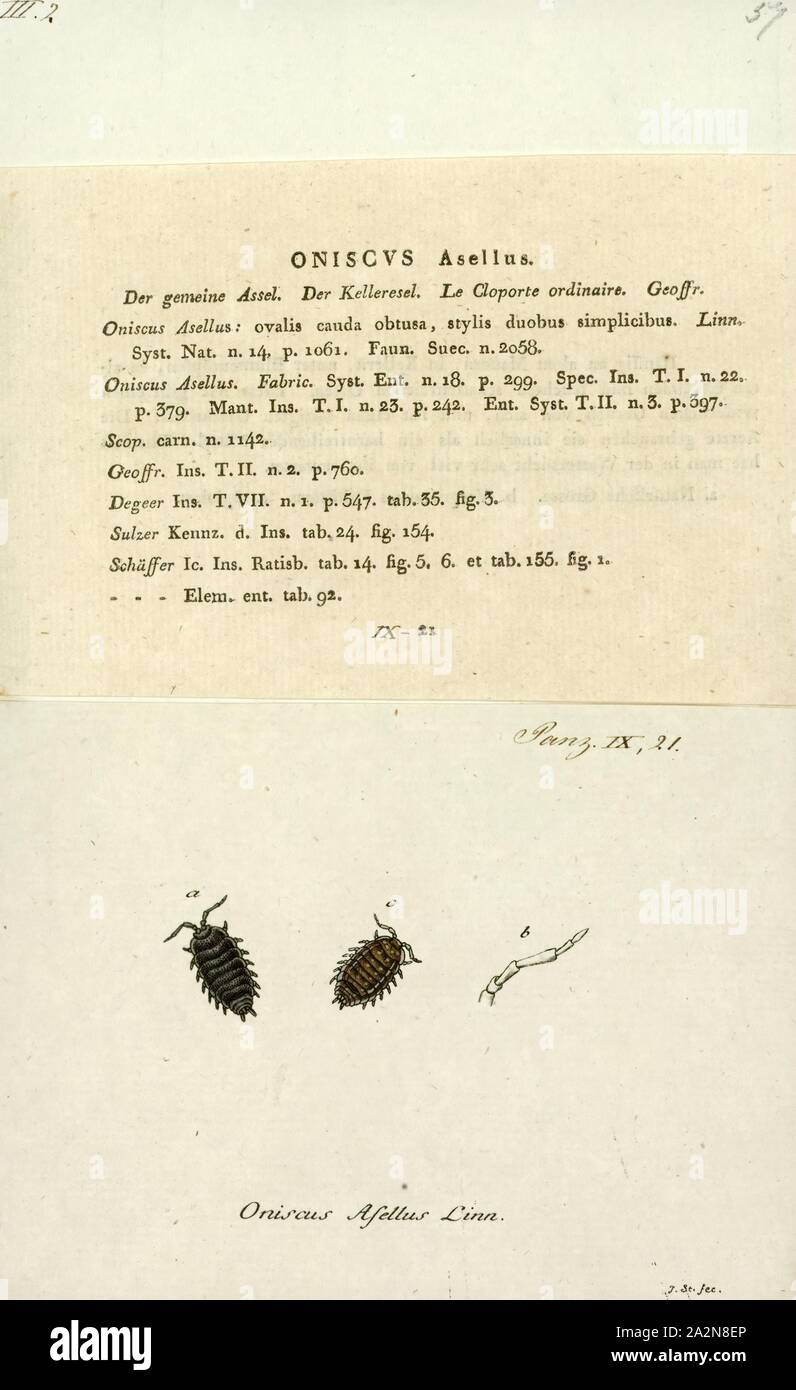 III. 2
57
ONISCVS Asellus.
Der gemeine Assel. Der Kelleresel. Le Cloporte ordinaire. Geoffr.
Oniscus Asellus: ovalis cauda obtusa, stylis duobus simplicibus. Linn.
Syst. Nat. n. 14, p. 1061. Faun. Suec. n. 2058.
Oniscus Asellus. Fabric. Syst. Ent. n. 18. p. 299. Spec. Ins. T. I. n. 22.
p. 379. Mant. Ins. T. I. n. 23. p. 242. Ent. Syst. T. II. n. 3. p. 397.
Scop. carn. n. 1142.
Geoffr. Ins. T. II. n. 2. p. 760.
Degeer Ins. T. VII. n. 1. p. 547. tab. 35. fig. 3.
Sulzer Kennz. d. Ins. tab. 24. fig. 154.
Schäffer Ic. Ins. Ratisb. tab. 14. fig. 5. 6. et tab. 155. fig. 1.
- - - Elem. ent. tab. 92.
IX - 21
Panz. IX, 21.
a
c
b
Oniscus Aſellus Linn.
J. St. fec.
alamy
alamy
alamy
a alamy
Image ID: A2N8EP
www.alamy.com